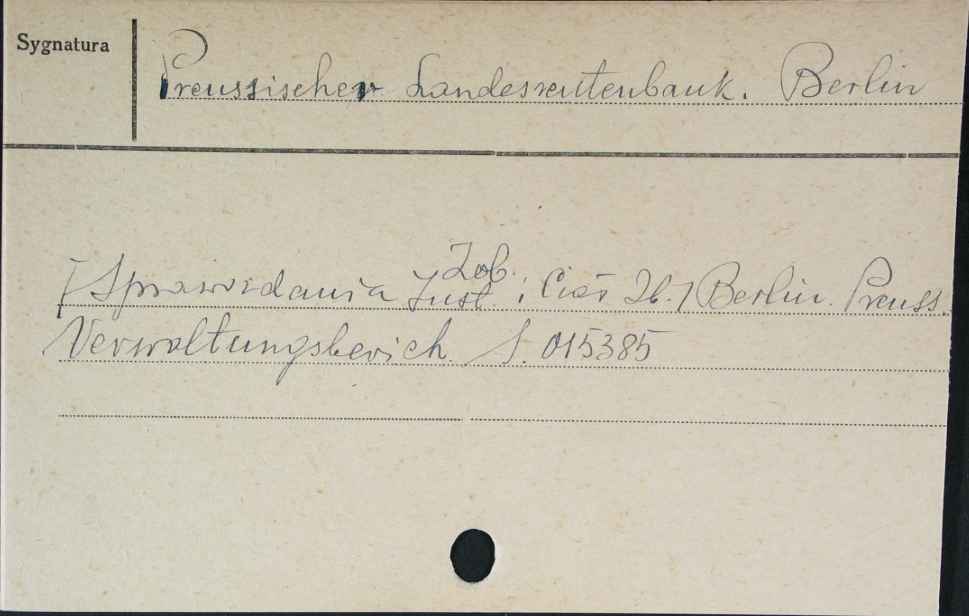 Sygnatura
Preussischer Landesrentenbank. Berlin
Zob.
[Sprawozdania Inst. i Ciał Zb.] Berlin. Preuss.
Verwaltungsberich. S. 015385